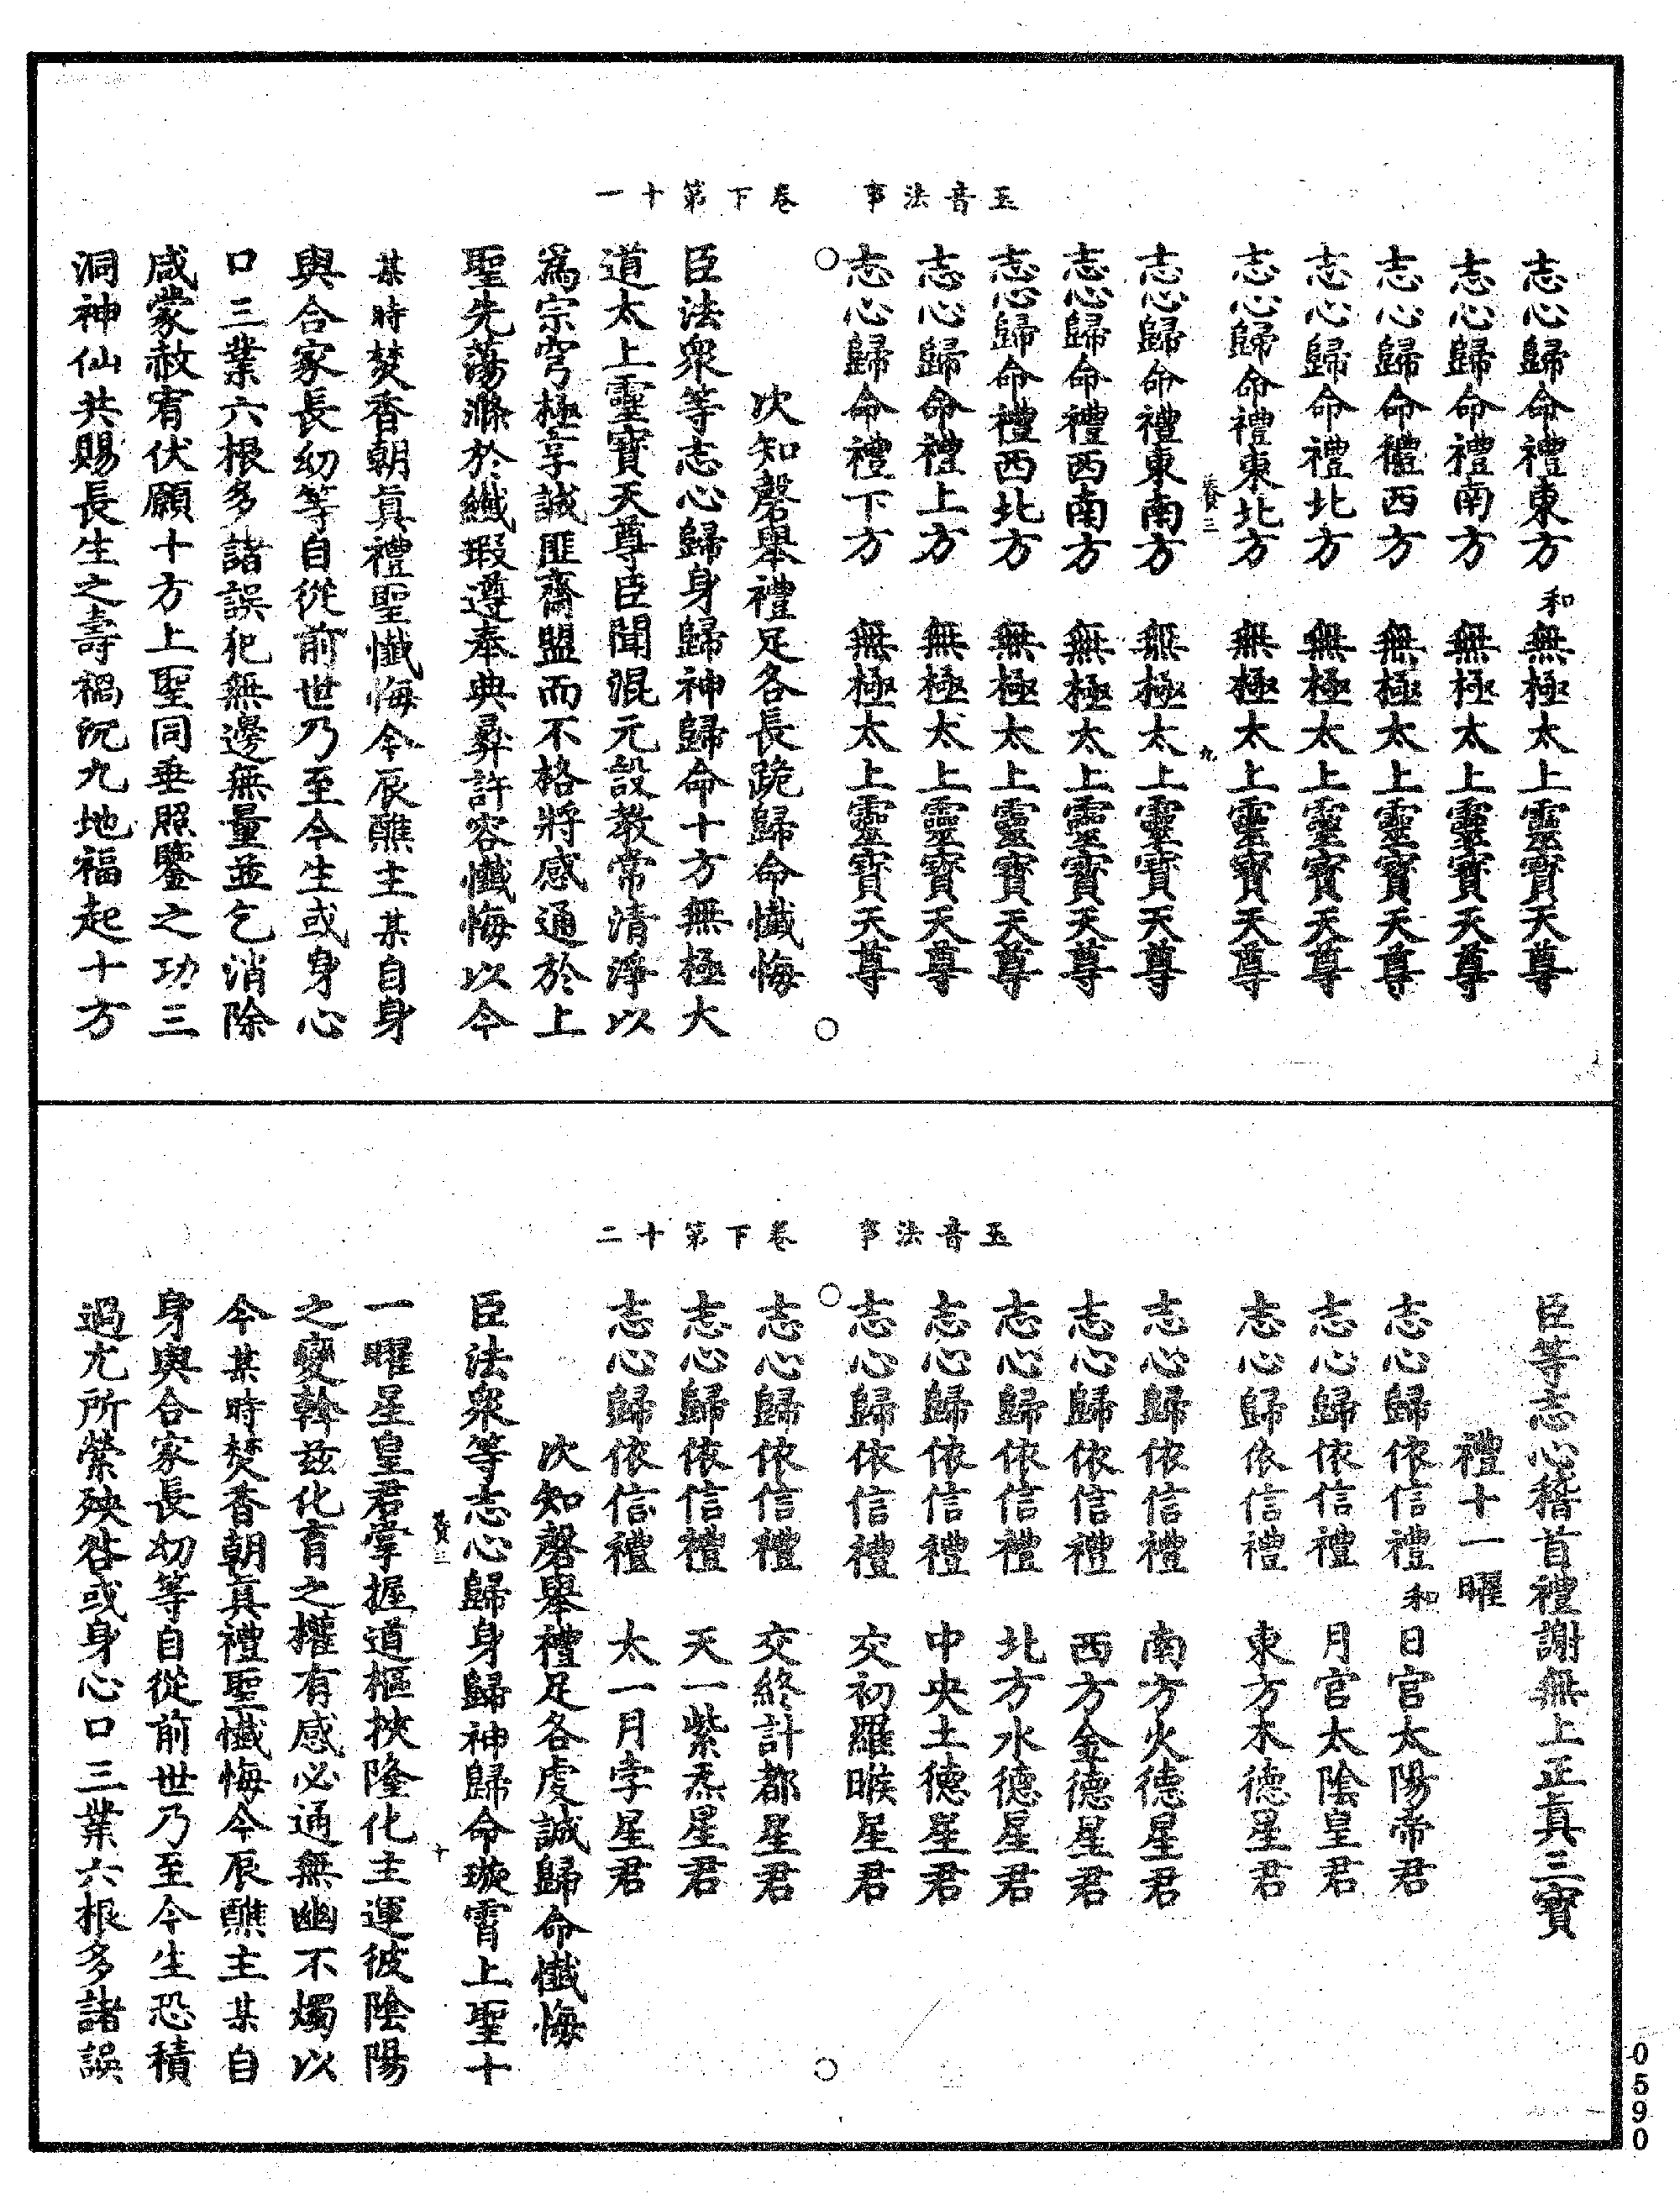 玉音法事　卷下第十一
志心歸命禮東方　和無極太上靈寶天尊
志心歸命禮南方　無極太上靈寶天尊
志心歸命禮西方　無極太上靈寶天尊
志心歸命禮北方　無極太上靈寶天尊
志心歸命禮東北方　無極太上靈寶天尊
養三　九
志心歸命禮東南方　無極太上靈寶天尊
志心歸命禮西南方　無極太上靈寶天尊
志心歸命禮西北方　無極太上靈寶天尊
志心歸命禮上方　無極太上靈寶天尊
志心歸命禮下方　無極太上靈寶天尊
○　○
次知磬舉禮足各長跪歸命懺悔
臣法衆等志心歸身歸神歸命十方無極大
道太上靈寶天尊臣聞混元設教常清淨以
爲宗穹極享誠匪齋盟而不格將感通於上
聖先蕩滌於纖瑕遵奉典彞許容懺悔以今
某時焚香朝眞禮聖懺悔今辰醮主某自身
與合家長幼等自從前世乃至今生或身心
口三業六根多諸誤犯無邊無量並乞消除
咸蒙赦宥伏願十方上聖同垂照鑒之功三
洞神仙共賜長生之壽禍沉九地福起十方
玉音法事　卷下第十二
臣等志心稽首禮謝無上正眞三寶
禮十一曜
志心歸依信禮　和日宮太陽帝君
志心歸依信禮　月宮太陰皇君
志心歸依信禮　東方木德星君
志心歸依信禮　南方火德星君
志心歸依信禮　西方金德星君
志心歸依信禮　北方水德星君
志心歸依信禮　中央土德星君
志心歸依信禮　交初羅睺星君
○　○
志心歸依信禮　交終計都星君
志心歸依信禮　天一紫炁星君
志心歸依信禮　太一月孛星君
次知磬舉禮足各虔誠歸命懺悔
臣法衆等志心歸身歸神歸命璇霄上聖十
養三　十
一曜星皇君掌握道樞挾隆化主運彼陰陽
之變斡茲化育之權有感必通無幽不燭以
今某時焚香朝眞禮聖懺悔今辰醮主某自
身與合家長幼等自從前世乃至今生恐積
過尤所縈殃咎或身心口三業六根多諸誤
0590